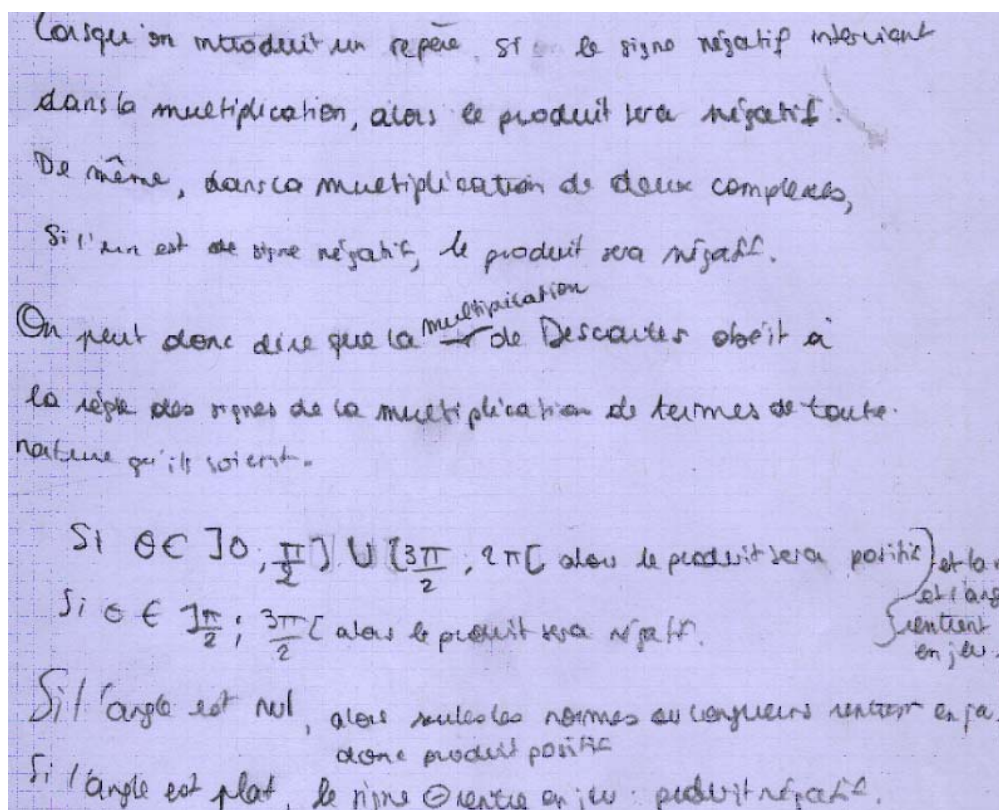 Lorsqu'on introduit un repère, si le signe négatif intervient
dans la multiplication, alors le produit sera négatif.
De même, dans la multiplication de deux complexes,
Si l'un est de signe négatif, le produit sera négatif.
On peut donc dire que la multiplication de Descartes obéit à
la règle des signes de la multiplication de termes de toute
nature qu'ils soient.
Si θ ∈ ]0, π/2] ∪ [3π/2, 2π[ alors le produit sera positif } et la
Si θ ∈ ]π/2 ; 3π/2[ alors le produit sera négatif.
et l'ang
rentrent
en jeu.
Si l'angle est nul, alors seules les normes ou longueurs rentrent en jeu.
donc produit positif
Si l'angle est plat, le signe ⊖ rentre en jeu : produit négatif.